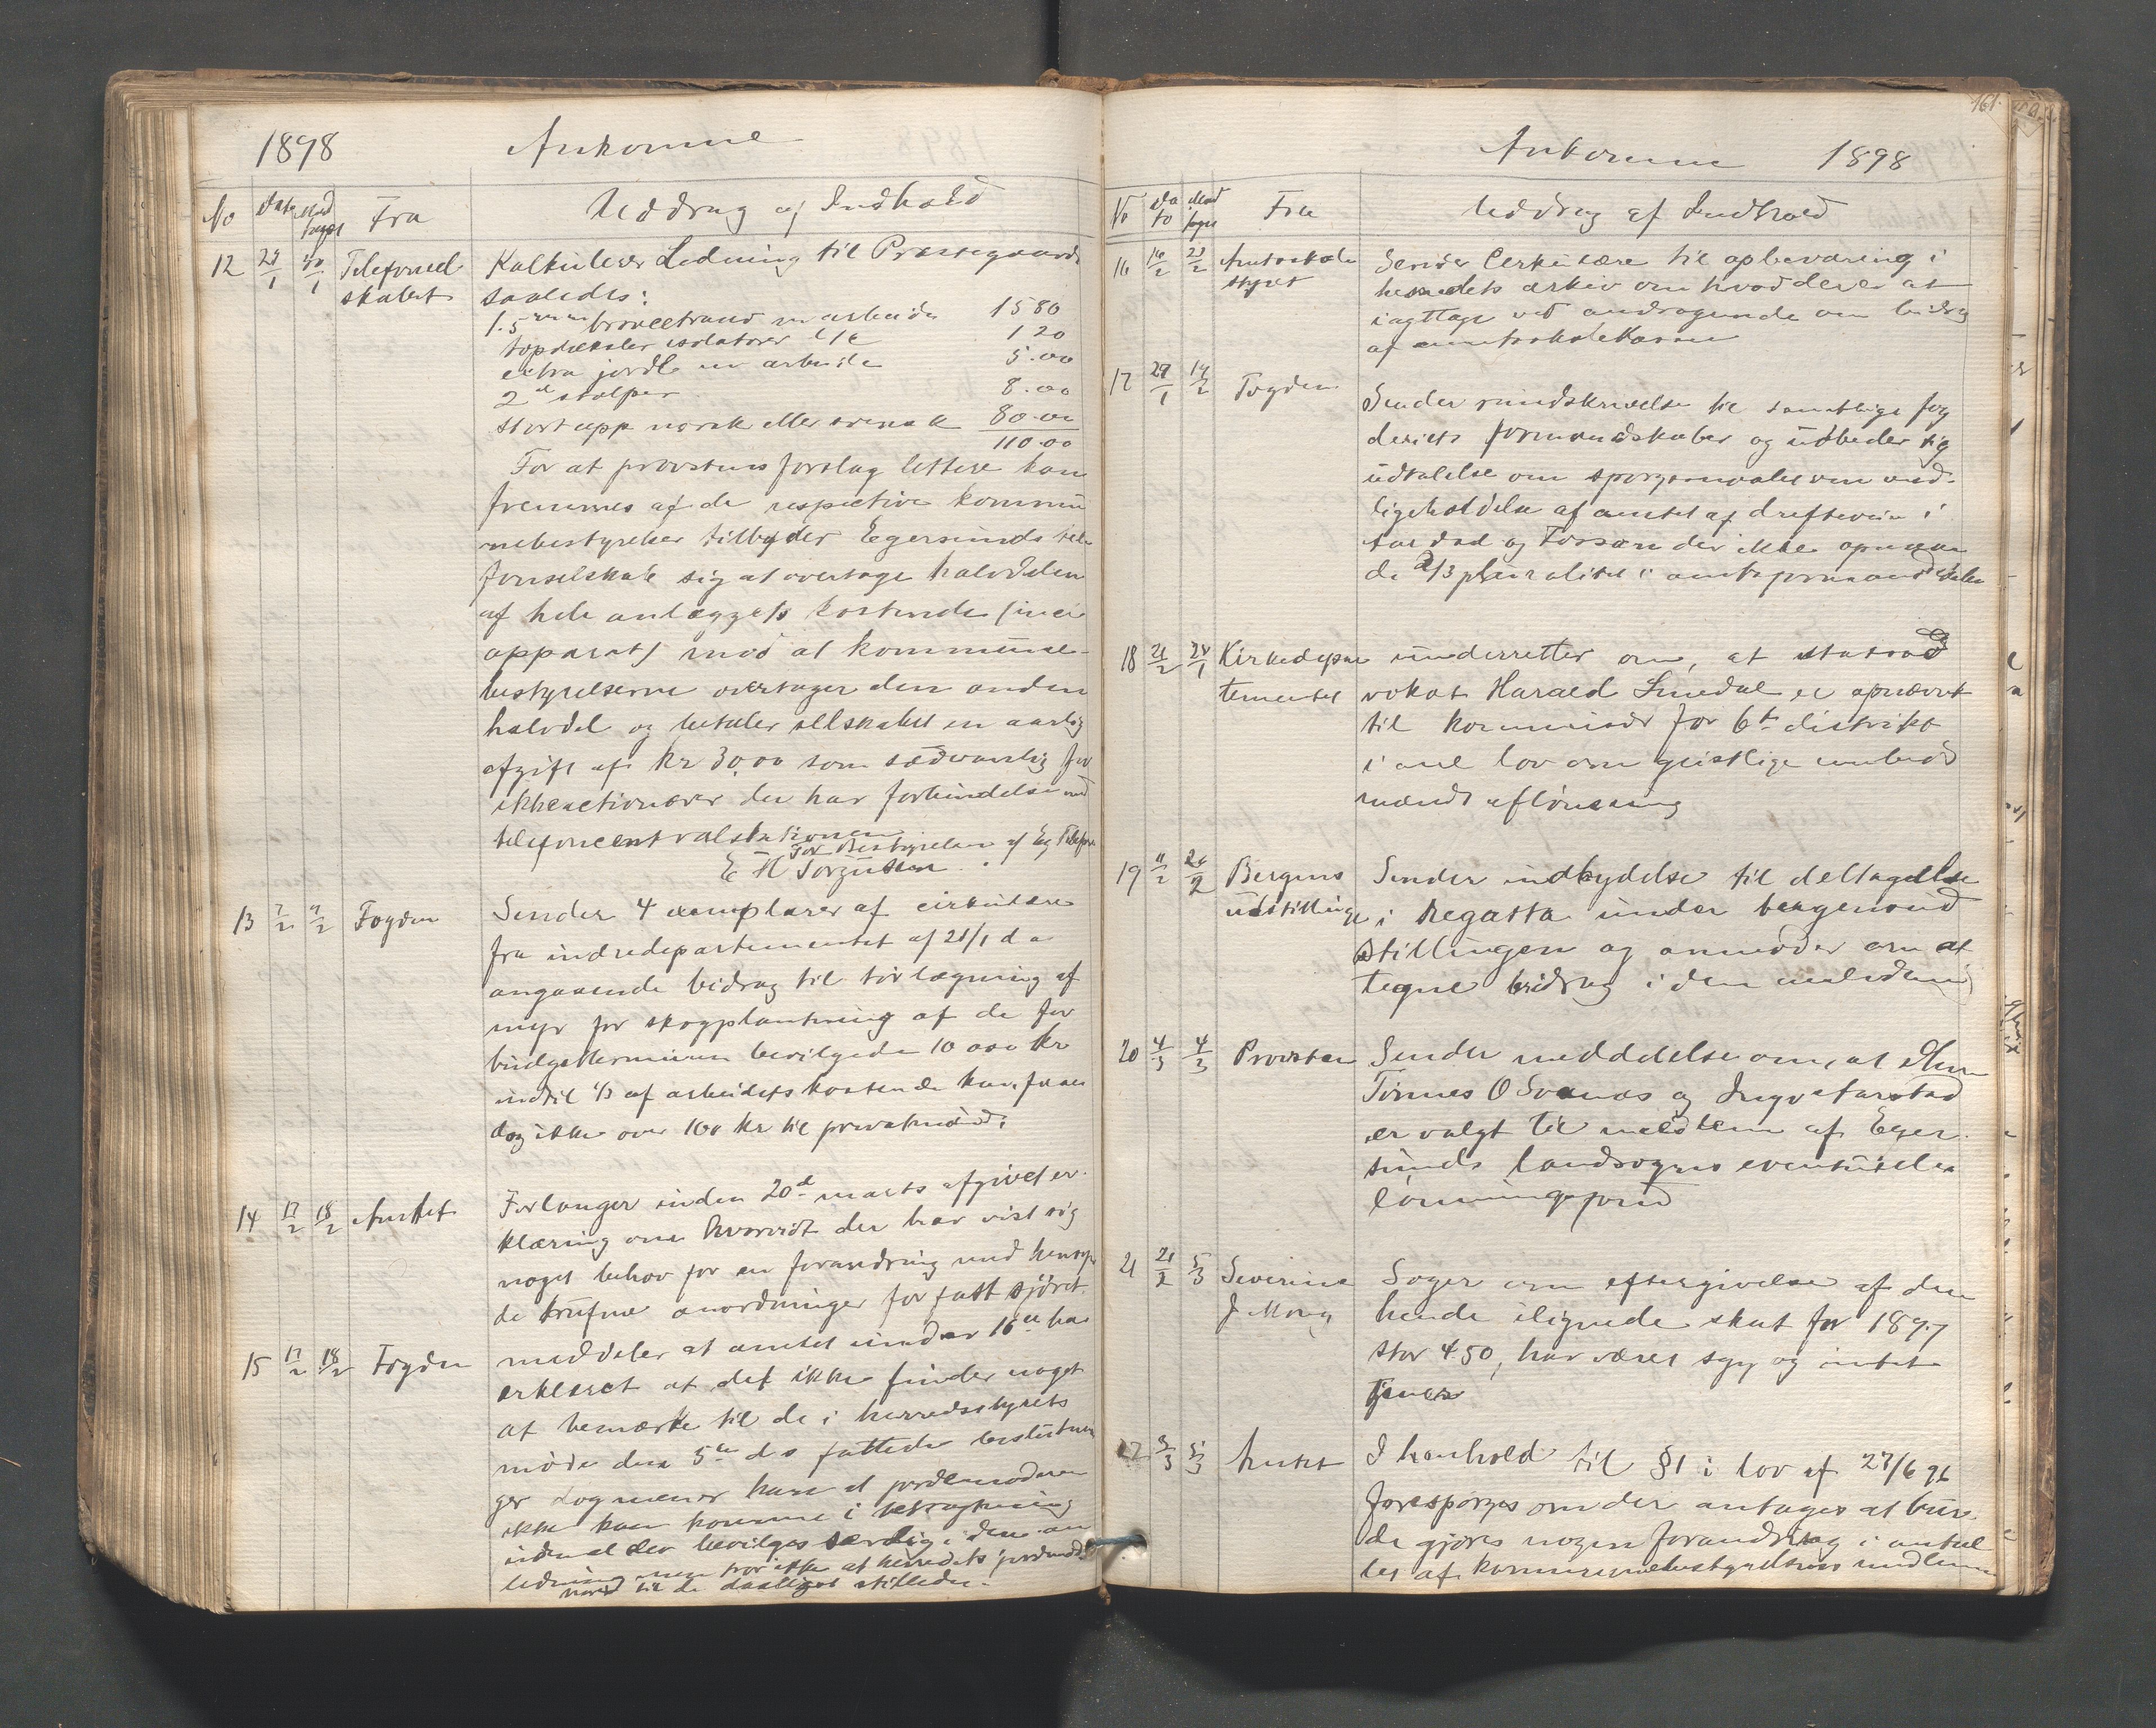 1898 Ankomne
No Dato Mod taget Fra Uddrag af Indhold
12 29/1 30/1 Telefonsel Kalkulerer Ledning til Præstegaarde
skabet saaledes:
1.5 mm broncetraad m arbeide 15 80
topdæksler isolatorer etc 1 20
extra jordl m arbeide 5.00
2 stolper 8.00
stort app norsk eller svensk 80.00
110.00
For at provstens forslag lettere kan
fremmes af de respective kommu
nebestyrelser tilbyder Egersunds tele
fonselskab sig at overtage halvdelen
af hele anlæggets kostende (incl
apparat) mod at kommune-
bestyrelserne overtager den anden
halvdel og betaler selskabet en aarlig
afgift af kr 30,00 som sædvanlig for
ikkeactionærer der har forbindelse med
telefoncentralstationen
For Bestyrelsen af Eg Telefon
E H Torjusen
13 7/2 9/2 Fogden Sender 4 exemplarer af cirkulære
fra indredepartementet af 21/1 d a
angaaende bidrag til tørlægning af
myr for skogplantning af de for
budgetterminen bevilgede 10 000 kr
indtil 1/3 af arbeidets kostende kan faaes
dog ikke over 100 kr til privatmænd.
14 17/2 18/2 Amtet Forlanger inden 20d marts afgivet er
klæring om hvorvidt der har vist sig
noget behov for en forandring med hensyn
de trufne anordninger for fast sjöret.
15 17/2 18/2 Fogden meddeler at amtet under 16de har
erklæret at det ikke finder noget
at bemærke til de i herredsstyrets
møde den 5te ds fattede beslutnin
ger dog mener han at jordemoderen
ikke kan komme i betragtning
uden at der bevilges særlig i den an
ledning men tror ikke at herredets jordmødre
nær til de daarligst stillede.
161.
Ankomne 1898
No Da to Mod taget Fra Uddrag af Indhold
16 16/2 23/2 Amtsskole Sender Cirkulære til opbevaring i
styret herredets arkiv om hvad der er at
iagttage ved andragende om bidrag
af amtsskolekassen
17 29/1 19/2 Fogden Sender rundskrivelse til samtlige fog
deriets formandskaber og udbeder sig
udtalelse om spørgsmaalet om ved-
ligeholdelse af amtet af driftevein i
og Fossan der ikke opnaae
de 2/3 pluralitet i amtsformandskabet
18 21/2 24/1 Kirkedepar underretter om, at statsad
tementet vokat Harald Smedal er opnævnt
til kommissær for 6te distrikt
i anl lov om geistlige embeds
mænds aflønning
19 11/2 24/2 Bergens Sender indbydelse til deltagelse
udstilling i Regatta under bergensud
stillingen og anmoder om at
tegne bidrag i den anledning
20 4/3 4/3 Provsten Sender meddelelse om, at dhrr
Tønnes O Svanes og Ingv
er valgt til medlem af Eger
sunds landsogns eventuelle
lønningsfond
21 21/2 5/3 Severine Søger om eftergivelse af den
J Mong hende ilignede skat for 1897
stor 4.50, har været syg og intet
tjener
22 3/3 5/3 Amtet I henhold til §1 i lov af 27/6 96
forespørges om der antages at bur
de gjøres nogen forandring i antal
let af kommunebestyrelsens medlemmer